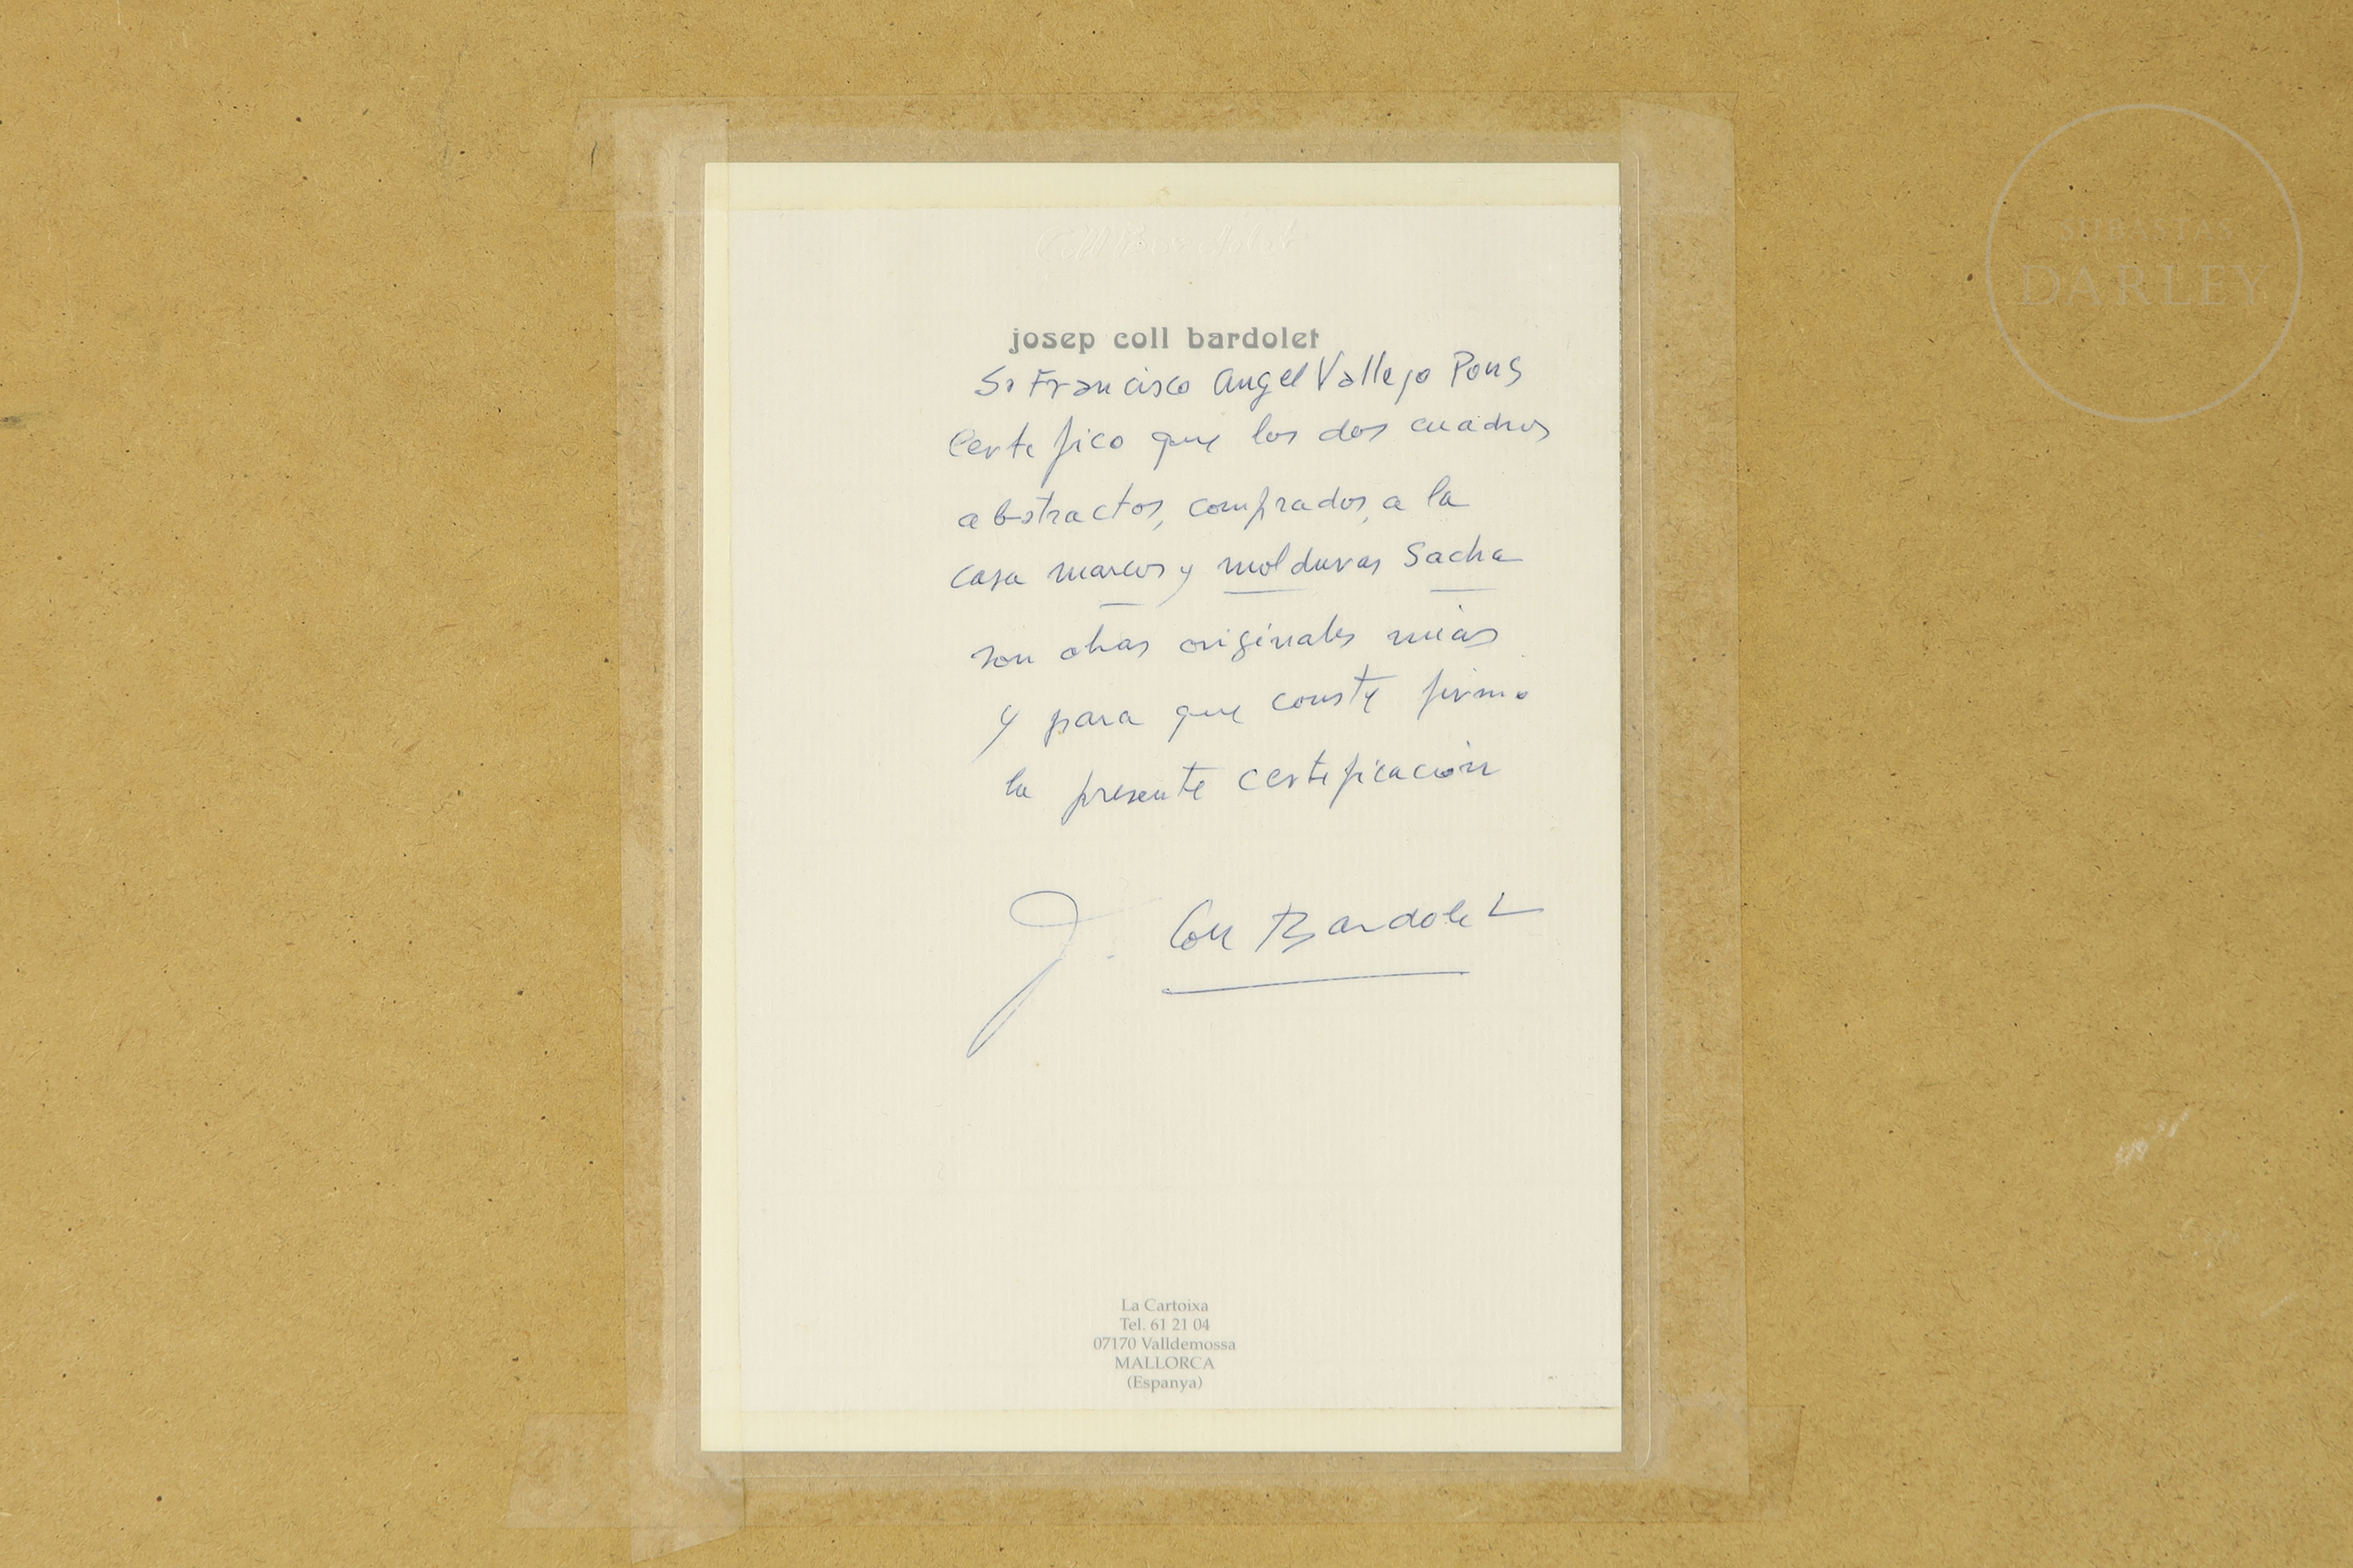 Coll Bardolet
josep coll bardolet
Sr Francisco Angel Vallejo Pons
Certifico que los dos cuadros
abstractos, comprados, a la
casa marcos y molduras Sacha
son obras originales mias
y para que conste firmo
la presente certificación
J. Coll Bardolet
La Cartoixa
Tel. 61 21 04
07170 Valldemossa
MALLORCA
(Espanya)
SUBASTAS
DARLEY